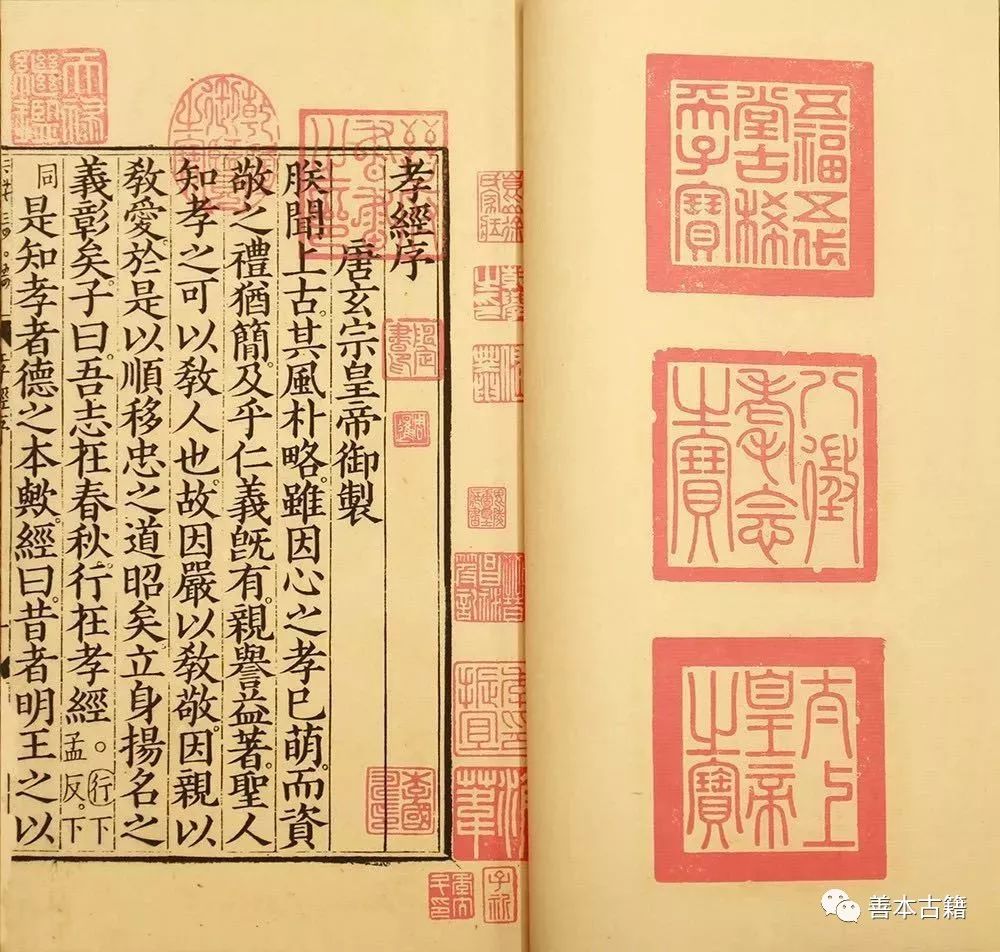 五福五代
堂古稀
天子寶
八徵
耄念
之寶
太上
皇帝
之寶
孝經序
唐玄宗皇帝御製
朕聞上古。其風朴略。雖因心之孝已萌。而資
敬之禮猶簡。及乎仁義旣有。親譽益著。聖人
知孝之可以敎人也。故因嚴以敎敬。因親以
敎愛。於是以順移忠之道昭矣。立身揚名之
義彰矣。子曰。吾志在春秋。行在孝經。行下孟反。下
同是知孝者德之本歟。經曰。昔者明王之以
乾隆御覽之寶
天祿繼鑑
善本古籍